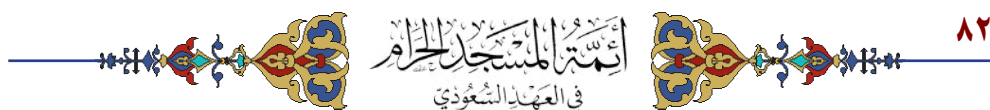 ٨٢
أئمة المسجد الحرام
في العهد السعودي